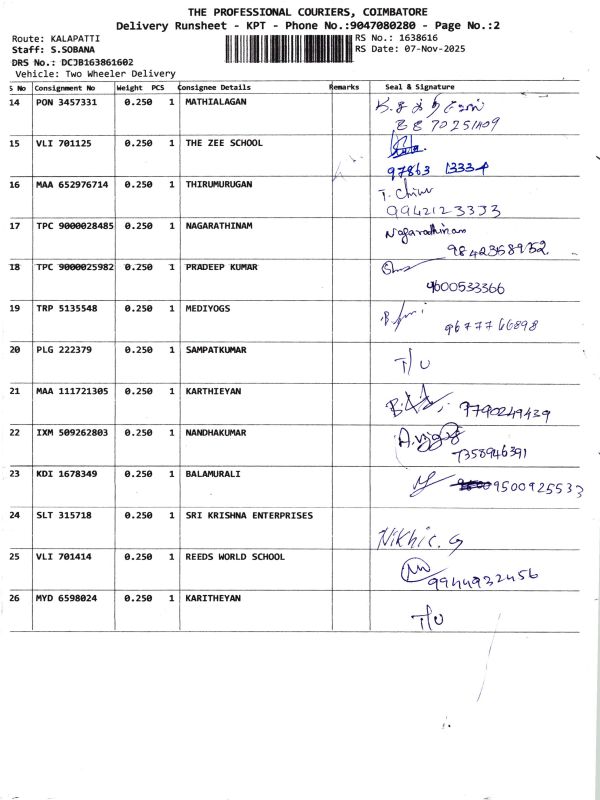 THE PROFESSIONAL COURIERS, COIMBATORE
Delivery Runsheet - KPT - Phone No.:9047080280 - Page No.:2
Route: KALAPATTI
RS No.: 1638616
Staff: S.SOBANA
RS Date: 07-Nov-2025
DRS No.: DCJB163861602
Vehicle: Two Wheeler Delivery
S No Consignment No Weight PCS Consignee Details Remarks Seal & Signature
14 PON 3457331 0.250 1 MATHIALAGAN
15 VLI 701125 0.250 1 THE ZEE SCHOOL
97863 13334
16 MAA 652976714 0.250 1 THIRUMURUGAN
9942123333
17 TPC 9000028485 0.250 1 NAGARATHINAM Nagarathinam
9842358952
18 TPC 9000025982 0.250 1 PRADEEP KUMAR
9600533366
19 TRP 5135548 0.250 1 MEDIYOGS
9677766898
20 PLG 222379 0.250 1 SAMPATKUMAR
T/U
21 MAA 111721305 0.250 1 KARTHIEYAN
7790249439
22 IXM 509262803 0.250 1 NANDHAKUMAR
7358946391
23 KDI 1678349 0.250 1 BALAMURALI
9500925533
24 SLT 315718 0.250 1 SRI KRISHNA ENTERPRISES
Nikhic. G
25 VLI 701414 0.250 1 REEDS WORLD SCHOOL
9944932456
26 MYD 6598024 0.250 1 KARITHEYAN
T/U